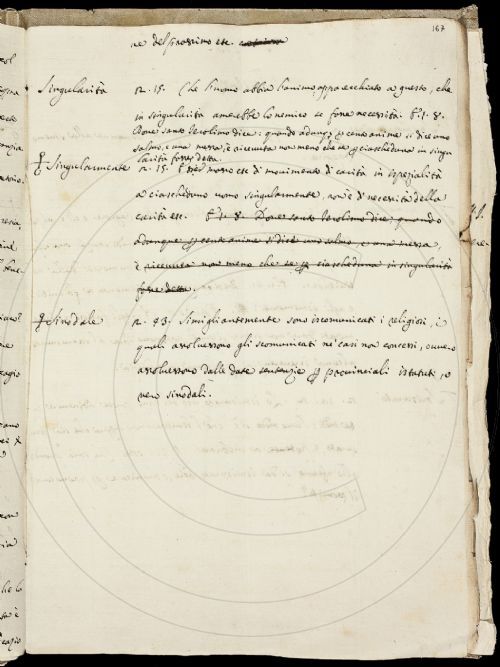 167
ne del prossimo etc.
Singularità n. 15. Che l'uomo abbia l'animo apparecchiato a questo, che
in singularità amerebbe lo nemico se fosse necessità. E n. 8.
Onde santo Ierolimo dice: quando adunq. per cento anime si dice uno
salmo, e una messa, è ricevuta non meno che se per ciascheduna in singu
larità fosse detta.
Singularmente n. 15. etc di movimento di carità in ispezialità
a ciascheduno uomo singularmente, non è di necessità della
carità etc. E n. 8. Dove santo Ierolimo dice, quando
adunque per cento anime si dice uno salmo, e una messa,
è ricevuta non meno che se per ciascheduna in singularità
fosse detta.
Sinodale n. 43. Simigliantemente sono iscomunicati i religiosi, i
quali assolvessono gli scomunicati ne' casi non concessi, ovvero
assolvessono dalle date sentenzie per provinciali istatuti, o
vero sinodali.